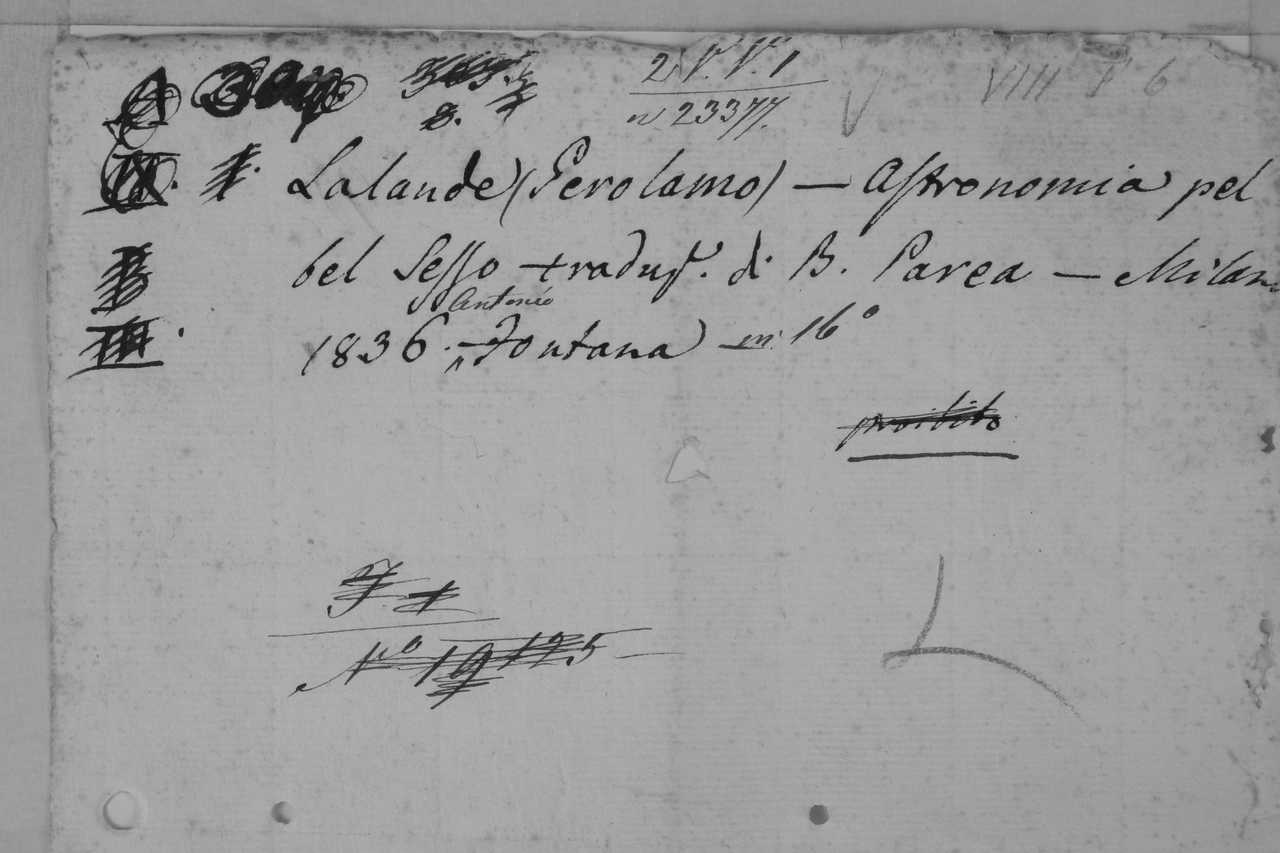 2 V. V. 1
n 23377.
V
VIII V 6
Lalande (Gerolamo) — Astronomia pel
bel Sesso traduz. di B. Parea — Milano
1836. Antonio Fontana in 16°
proibito
N° 19125
L